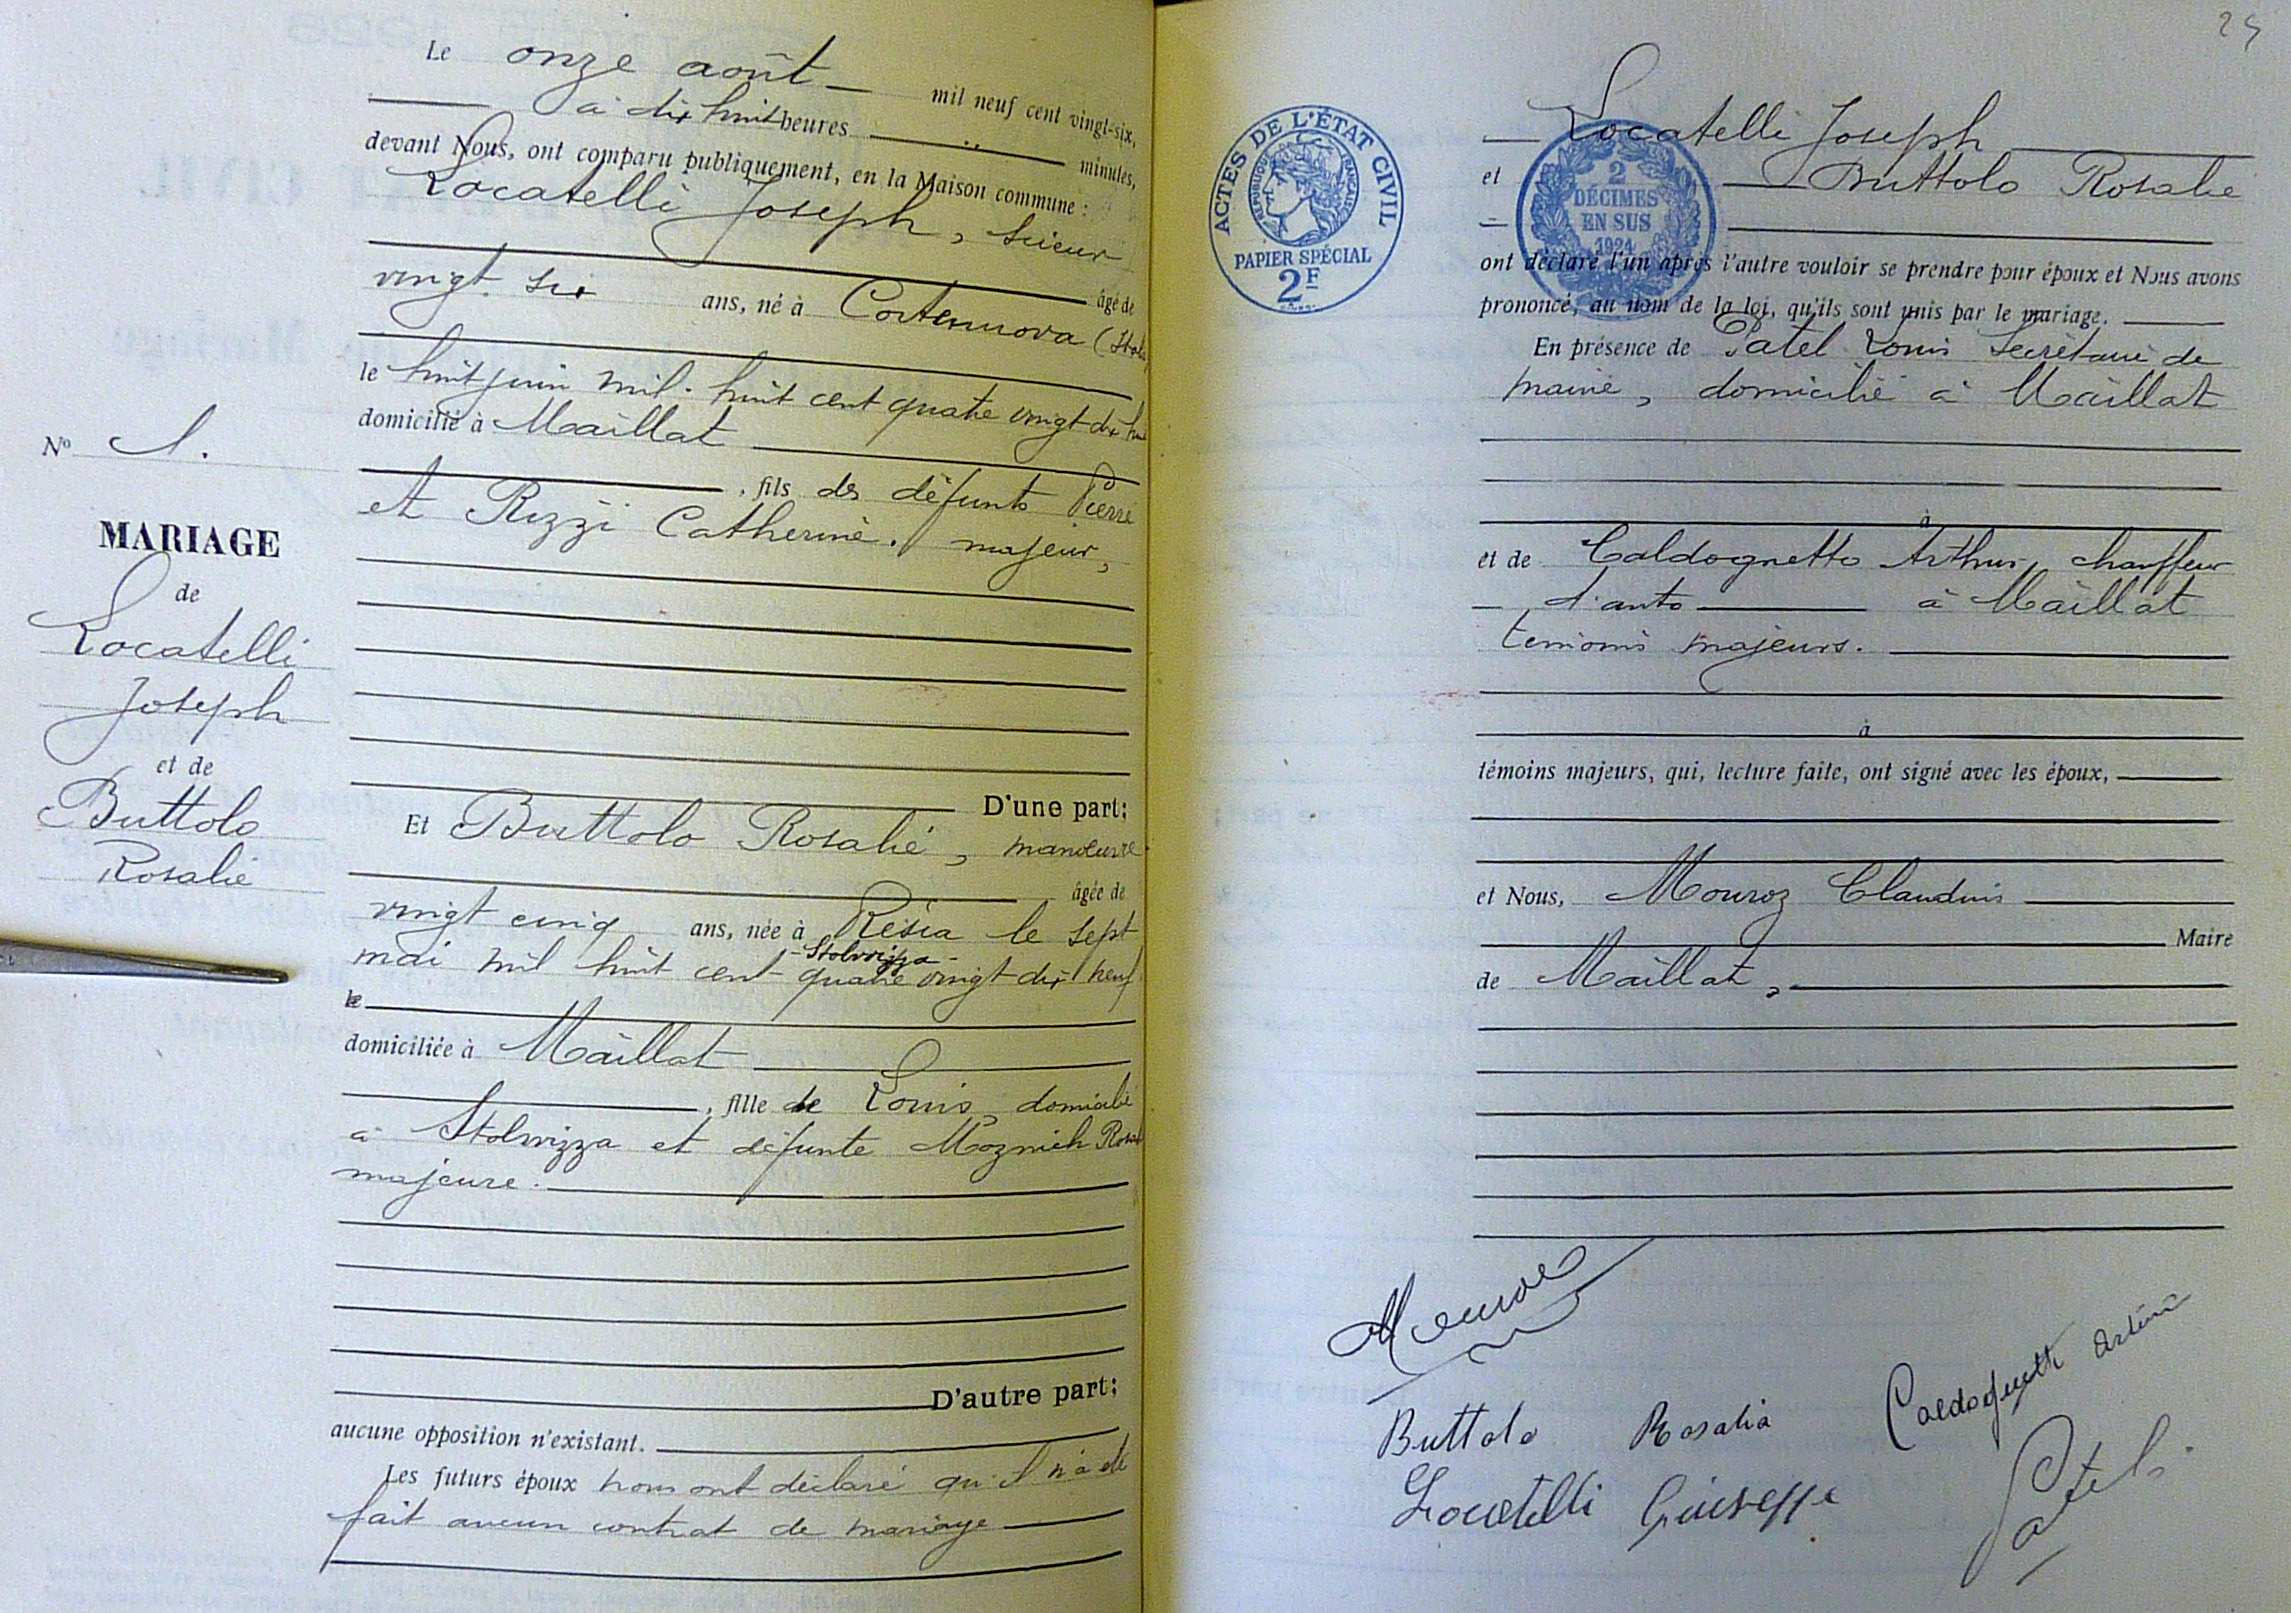 Le onze août mil neuf cent vingt-six,
à dix huit heures minutes,
devant Nous, ont comparu publiquement, en la Maison commune :
Locatelli Joseph, scieur
âgé de
vingt six ans, né à Cortenuova
le huit juin mil huit cent quatre vingt dix
domicilié à Maillat
, fils des défunts Pierre
et Rizzi Catherine, majeur,
Nº 1.
MARIAGE
de
Locatelli
Joseph
et de
Buttolo
Rosalie
D'une part;
Et Buttolo Rosalie, manœuvre
âgée de
vingt cinq ans, née à Résia le sept
- Stolvizza -
mai mil huit cent quatre vingt dix neuf
le
domiciliée à Maillat
, fille de Louis, domicilié
à Stolvizza et défunte
majeure.
D'autre part;
aucune opposition n'existant.
Les futurs époux nous ont déclaré qu'il n'a été
fait aucun contrat de mariage
Locatelli Joseph
et Buttolo Rosalie
ACTES DE L'ÉTAT CIVIL
RÉPUBLIQUE FRANÇAISE
PAPIER SPÉCIAL
2F
2
DÉCIMES
EN SUS
1924
ont déclaré l'un après l'autre vouloir se prendre pour époux et Nous avons
prononcé, au nom de la loi, qu'ils sont unis par le mariage.
En présence de Patel Louis Secrétaire de
mairie, domicilié à Maillat
à
et de Caldognetto Arthur, chauffeur
d'auto à Maillat
témoins majeurs.
à
témoins majeurs, qui, lecture faite, ont signé avec les époux,
et Nous, Mouroz Claudius
Maire
de Maillat,
Buttolo Rosalia
Locatelli Giuseppe